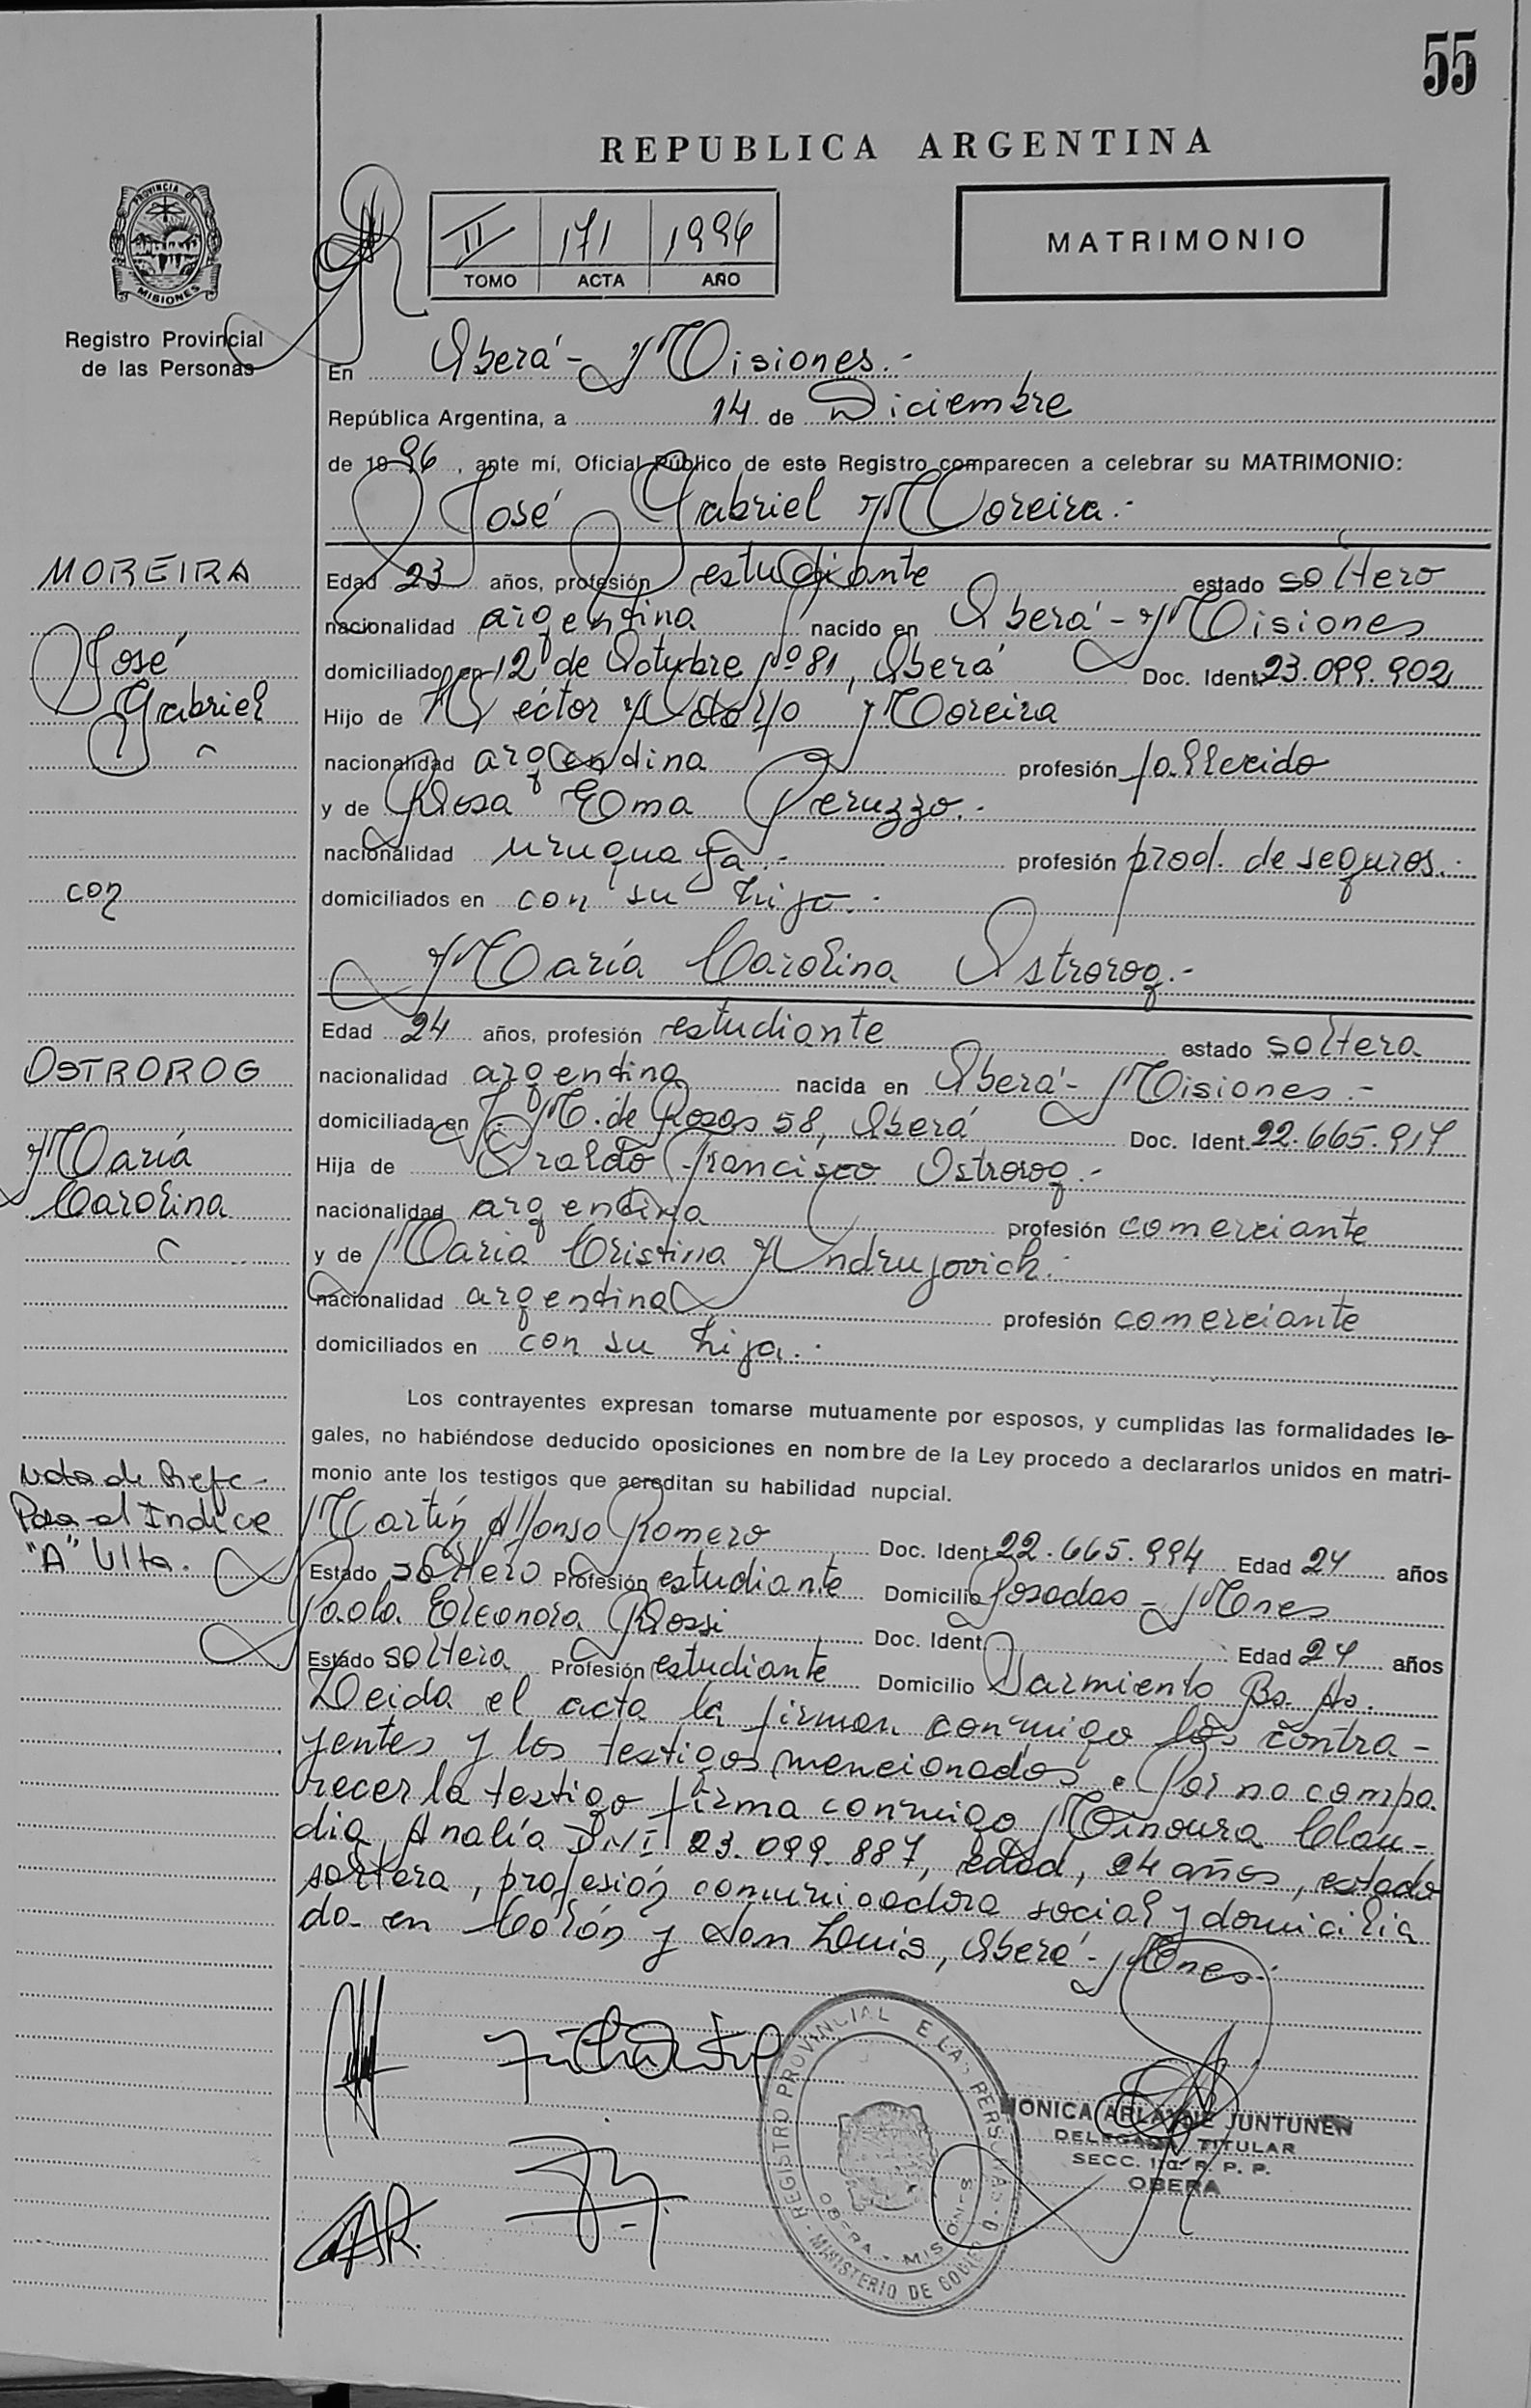 55
REPUBLICA ARGENTINA
PROVINCIA DE
MISIONES
Registro Provincial
de las Personas
II 171 1996
TOMO ACTA AÑO
MATRIMONIO
En Oberá - Misiones.-
República Argentina, a 14 de Diciembre
de 1996, ante mí, Oficial Público de este Registro comparecen a celebrar su MATRIMONIO:
José Gabriel Moreira.-
MOREIRA
José
Gabriel
Edad 23 años, profesión estudiante estado soltero
nacionalidad argentina nacido en Oberá - Misiones
domiciliado en 12 de Octubre nº 81, Oberá Doc. Ident. 23.099.902
Hijo de Héctor Adolfo Moreira
nacionalidad argentina profesión fallecido
y de Rosa Ema Peruzzo.-
nacionalidad uruguaya.- profesión prod. de seguros.-
con
domiciliados en con su hijo.-
María Carolina Ostrorog.-
Edad 24 años, profesión estudiante estado soltera
OSTROROG
María
Carolina
nacionalidad argentina nacida en Oberá - Misiones.-
domiciliada en J. M. de Rosas 58, Oberá Doc. Ident. 22.665.917
Hija de Oraldo Francisco Ostrorog.-
nacionalidad argentina profesión comerciante
y de María Cristina Andrujovich.-
nacionalidad argentina profesión comerciante
domiciliados en con su hija.-
Los contrayentes expresan tomarse mutuamente por esposos, y cumplidas las formalidades le-
gales, no habiéndose deducido oposiciones en nombre de la Ley procedo a declararlos unidos en matri-
monio ante los testigos que acreditan su habilidad nupcial.
Nota de Refe-
Pasa al Indice
"A" Vlta.
Martín Alfonso Romero Doc. Ident. 22.665.994 Edad 24 años
Estado soltero Profesión estudiante Domicilio Posadas - Mnes
Paola Eleonora Rossi Doc. Ident. Edad 24 años
Estado soltera Profesión estudiante Domicilio Sarmiento Bs. As.
Leida el acta la firman conmigo los contra-
yentes y los testigos mencionados. Por no compa
recer la testigo firma conmigo Minoura Clau-
dia Analía DNI 23.099.887, edad, 24 años, estado
soltera, profesión comunicadora social y domicilia
da en Colón y San Luis, Oberá - Mnes.-
REGISTRO PROVINCIAL E LAS PERSONAS
OBERA - MISIONES
MINISTERIO DE GOBIERNO
MONICA JUNTUNEN
DELEGADA TITULAR
SECC. 1ra. R. P. P.
OBERA